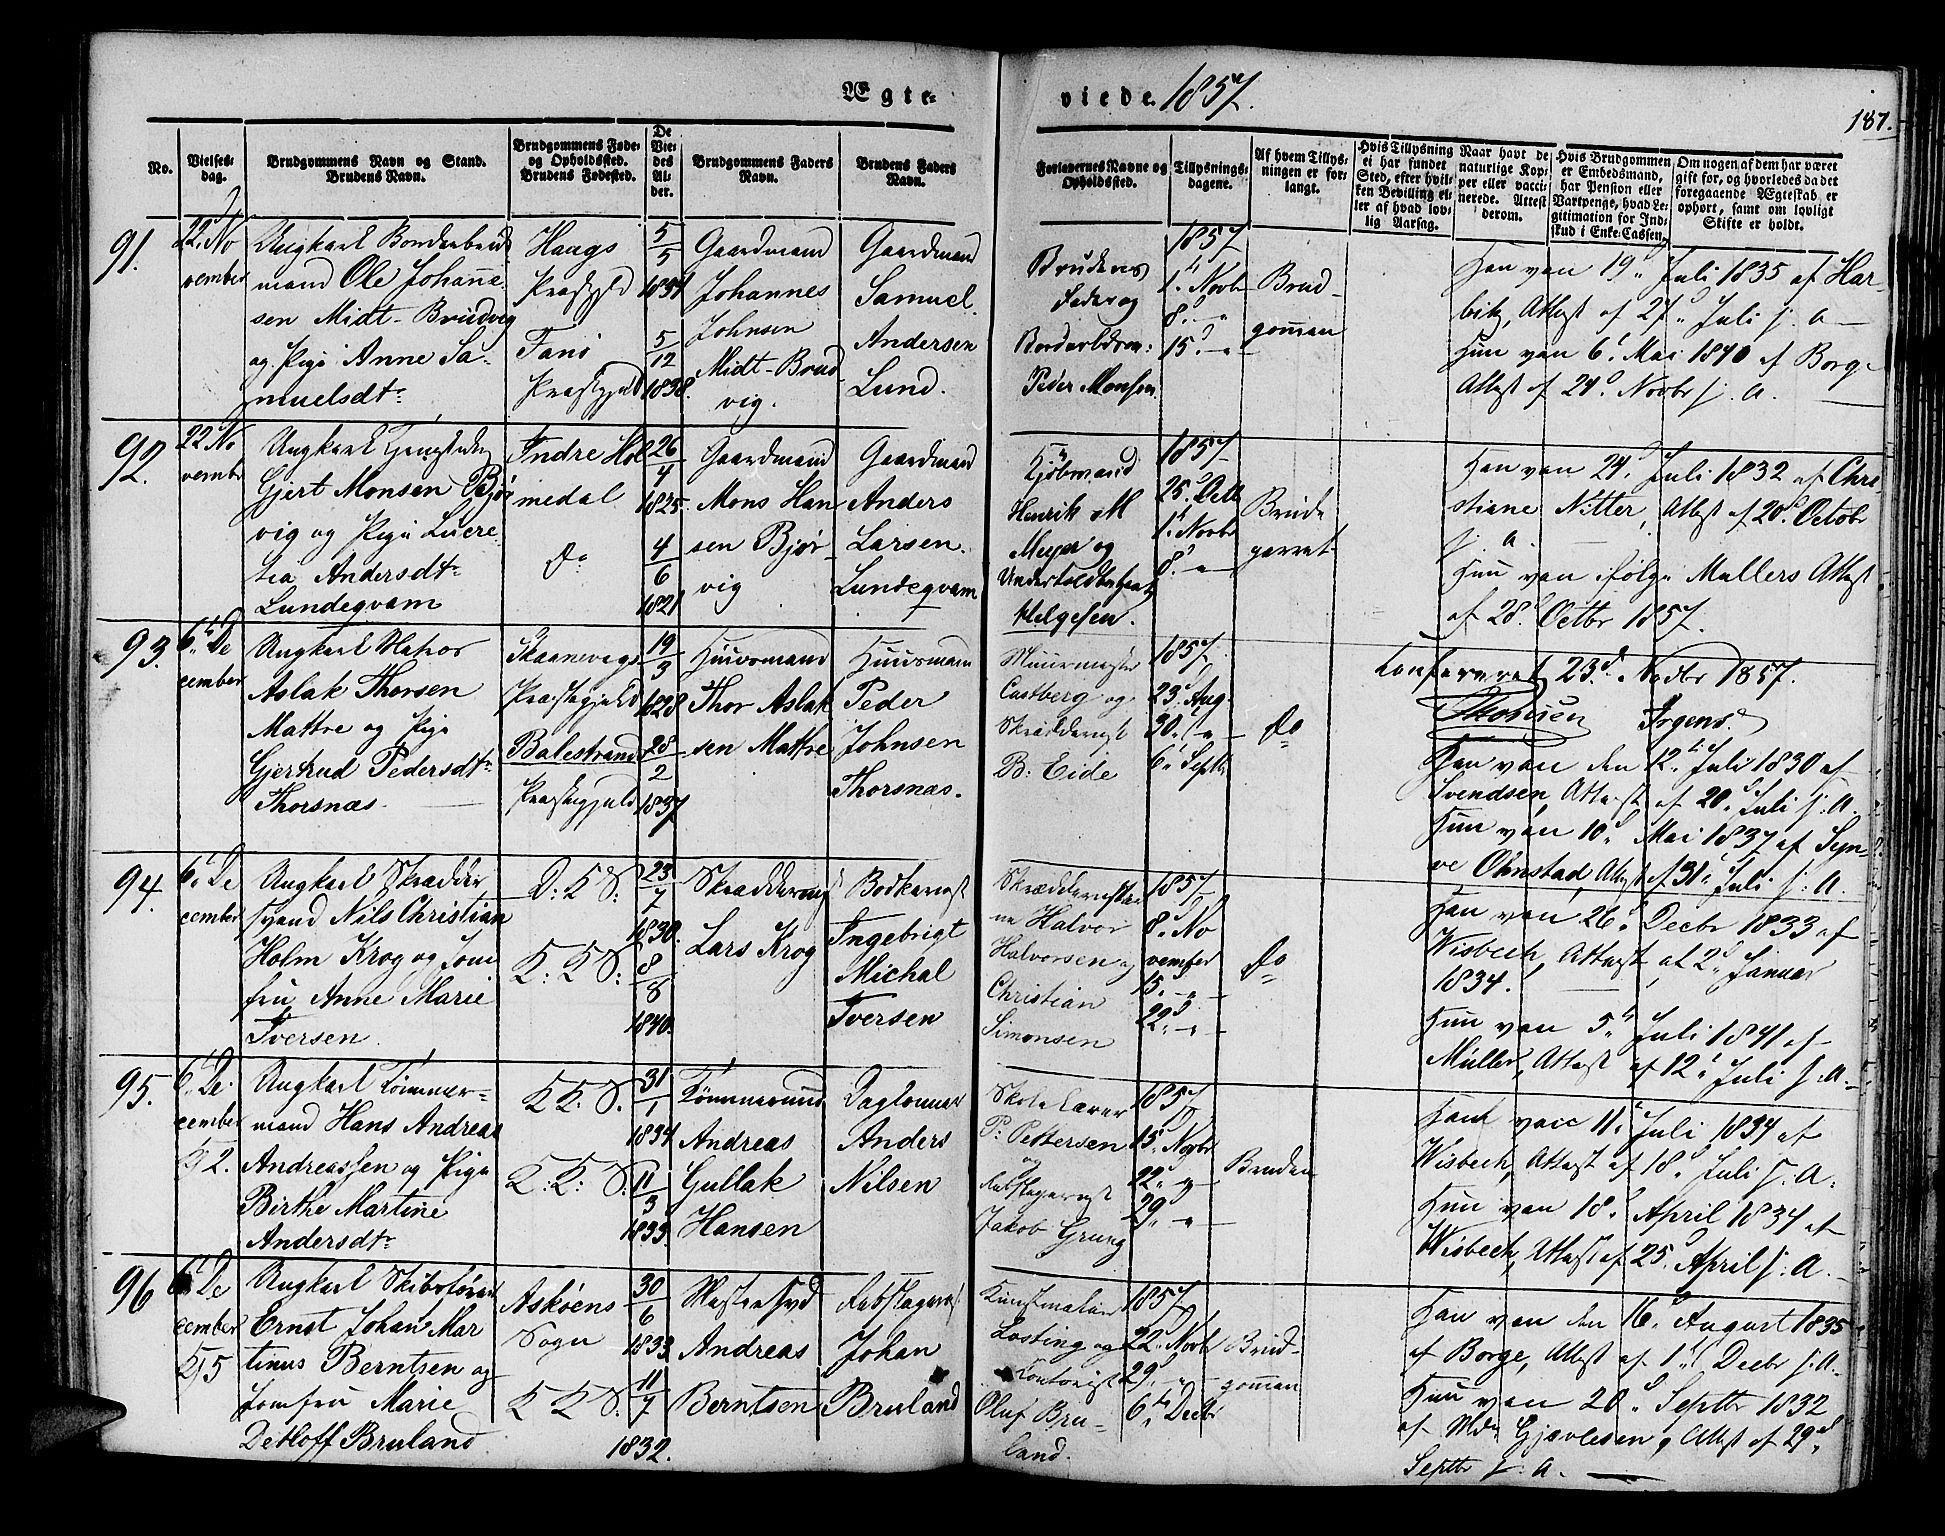 Ægte-
viede. 1857.
187.
No.
Vielses-
dag.
Brudgommens Navn og Stand.
Brudens Navn.
Brudgommens Føde-
og Opholdssted.
Brudens Fødested.
De
Vie-
des
Al-
der.
Brudgommens Faders
Navn.
Brudens Faders
Navn.
Forlovernes Navne og
Opholdssted.
Tillysnings-
dagene.
Af hvem Tillys-
ningen er for-
langt.
Hvis Tillysning
ei har fundet
Sted, efter hvil-
ken Bevilling el-
ler af hvad lov-
lig Aarsag.
Naar havt de
naturlige Kop-
per eller vacci-
nerede. Attest
derom.
Hvis Brudgommen
er Embedsmand,
har Pension eller
Vartpenge, hvad Le-
gitimation for Ind-
skud i Enke-Cassen.
Om nogen af dem har været
gift før, og hvorledes da det
foregaaende Ægteskab er
ophørt, samt om lovligt
Skifte er holdt.
91.
22. No
vember
Ungkarl
mand Ole Johanne-
sen Midt-Brudvig
og Pige Anne Sa-
muelsdtr
Haugs
Præstgjld
Fanø
Præstgjeld
5/5
1834
5/12
1838.
Gaardmand
Johannes
Johnsen
Midt-Brud
vig.
Gaardmand
Samuel
Andersen
Lund.
Brudens
Fader og
Peder Monsen
1857
1. Novbr
8. "
15. "
Brud-
gommen
Han vac 19. Juli 1835 af Har-
bitz, Attest af 27. Juli s. a.
Hun vac 6. Mai 1840 af Borge
Attest af 24. Novbr s. a.
92.
22. No
vembr
Ungkarl
Gjert Monsen Bjør
vig og Pige Lucre-
tia Andersdtr
Lundeqvam
Indre Hol
medal
do
26/4
1825
4/6
1821
Gaardmand
Mons Han
sen Bjør-
vig
Gaardmand
Anders
Larsen
Lundeqvam
Kjøbmand
Henrik M
Meyer og
Helgesen.
1857
25. Octb
1. Novbr
8. "
Brude
parret
Han vac 24. Juli 1832 af Chri-
stiane Nitter, Attest af 20. Octobr
s. a.
Hun vac ifølge Mullers Attest
af 28. Octbr 1857.
Konfereret 23d. Novbr 1857.
Irgens.
93.
6. De
cember
Ungkarl Matros
Aslak Thorsen
Mattre og Pige
Gjertrud Pedersdtr
Thorsnæs.
Skaanevigs
Præstegjeld
Balestrands
Præstegjeld
19/3
1828
28/2
1837
Huusmand
Thor Aslak
sen Mattre
Huusmand
Peder
Johnsen
Thorsnæs.
Muurmester
Castberg og
Skrædermst
B: Eide
1857
23. Aug.
30. "
6. Septb
do
Han vac den 12. Juli 1830 af
Svendsen, Attest af 20. Juli s. A.
Hun vac 10. Mai 1837 af Syn-
ve Ohnstad, Attest af 31. Juli s. A.
94.
6. De
cember
Ungkarl Skrædder
svend Nils Christian
Holm Krog og Jom
fru Anne Marie
Iversen
D: K S.
K: K S:
23/7
1830.
8/8
1840.
Skræddermst
Lars Krog
Bødkermst
Ingebrigt
Michal
Iversen
Skræddermstr
ne Halvor
Halvorsen og
Christian
Simonsen
1857
8. No
vember
15. "
22. "
do
Han vac 26. Decbr 1833 af
Wisbech, Attest af 2. Januar
1834.
Hun vac 5. Juli 1841 af
Müller, Attest af 12. Juli s. A.
95.
6. De
cember
Ungkarl Tømmer-
mand Hans Andreas
Andreassen og Pige
Birthe Martine
Andersdtr
K K: S.
K: K: S.
31/1
1834
11/3
1833.
Tømmermand
Andreas
Gullak
Hansen
Daglønner
Anders
Nilsen
Skolelærer
P: Pettersen
og
Rebslagermst
Jakob Grung
1857
15. Novbr
22. "
29. "
Bruden
Han vac 11. Juli 1834 af
Wisbech, Attest af 18. Juli s. A.
Hun vac 18. April 1834 af
Wisbech, Attest af 25. April s. A.
96
6. De
cember
Ungkarl
Ernst Johan Mar
tinus Berntsen og
Jomfru Marie
Detloff Bruland
Askøens
Sogn
K K S.
30/6
1833
11/7
1832.
Andreas
Berntsen
Rebslagermst
Johan
Bruland
Kunstmaler
Losting og
Kontorist
Oluf Bru-
land.
1857
22. Novb
29. "
6. Decbr
Brud-
gommen
Han vac den 16. August 1835
af Borge, Attest af 1. Decbr s. A.
Hun vac 20. Septbr 1832
af Gjævlesen, Attest af 29.
Septbr s. a.